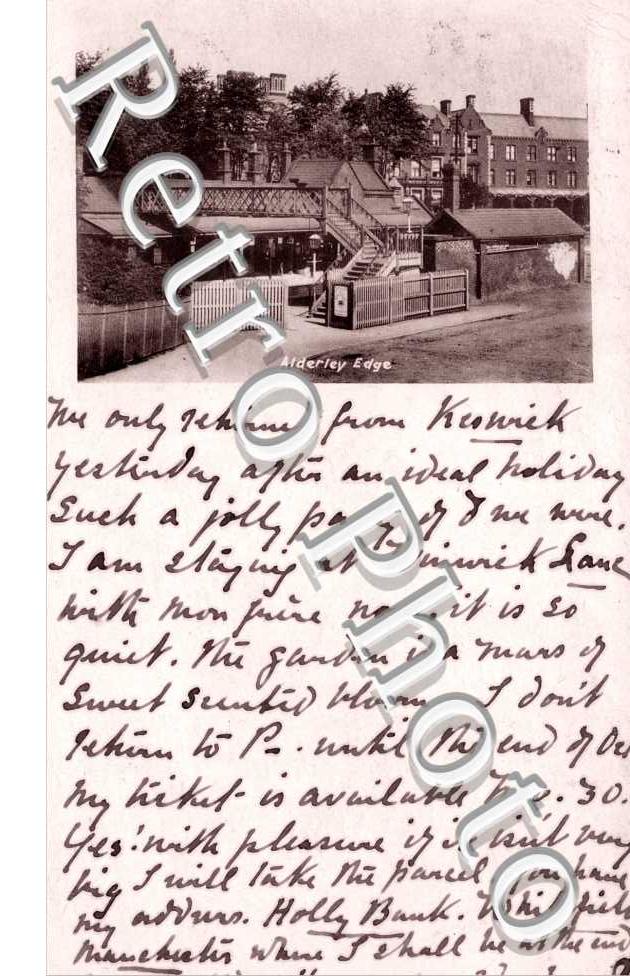 Alderley Edge
Retro Photo
We only returned from Keswick
yesterday after an ideal holiday
Such a jolly party of 8 we were.
I am staying at Lane
with mon frère it is so
quiet. The garden is a mass of
sweet scented bloom I don't
return to P-. until the end of
my ticket is available 30.
Yes! with pleasure if it isn't very
big I will take the parcel you have
my address. Holly Bank.
Manchester where I shall be at the end